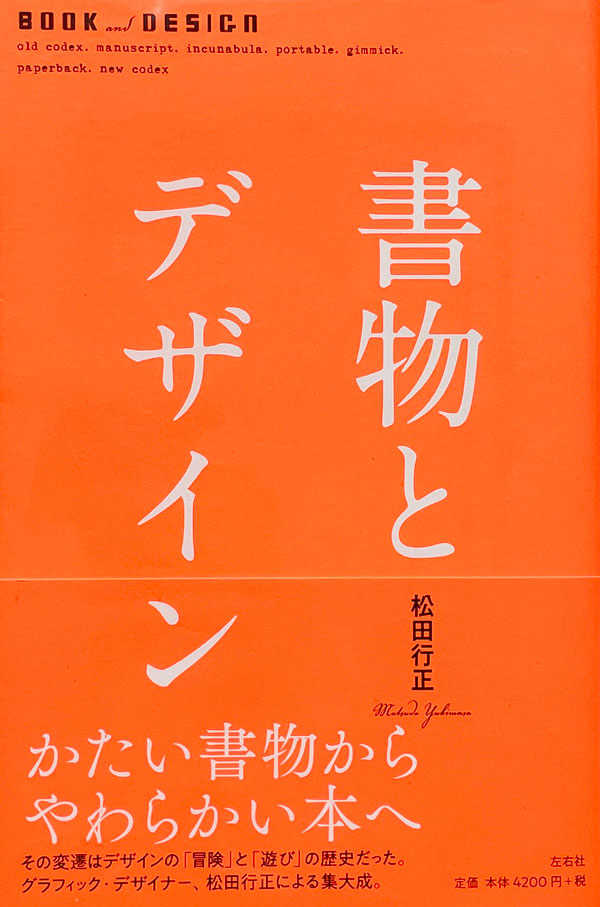 BOOK and DESIGN
old codex. manuscript. incunabula. portable. gimmick.
paperback. new codex
書物と
デザイン
松田行正
Matsuda Yukimasa
かたい書物から
やわらかい本へ
その変遷はデザインの「冒険」と「遊び」の歴史だった。
グラフィック・デザイナー、松田行正による集大成。
左右社
定価 本体4200円+税